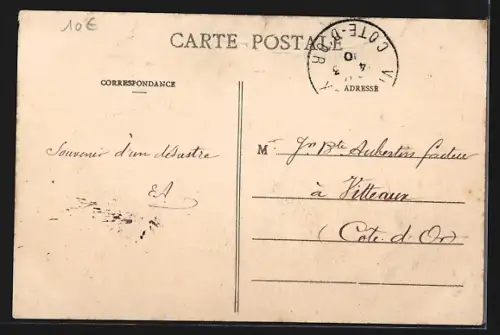 10€
CARTE POSTALE
COTE-D'OR
4 3
10
CORRESPONDANCE
ADRESSE
Souvenir d'un désastre
EA
M Jn Bte Aubertin facteur
à Vitteaux
(Cote-d'Or)